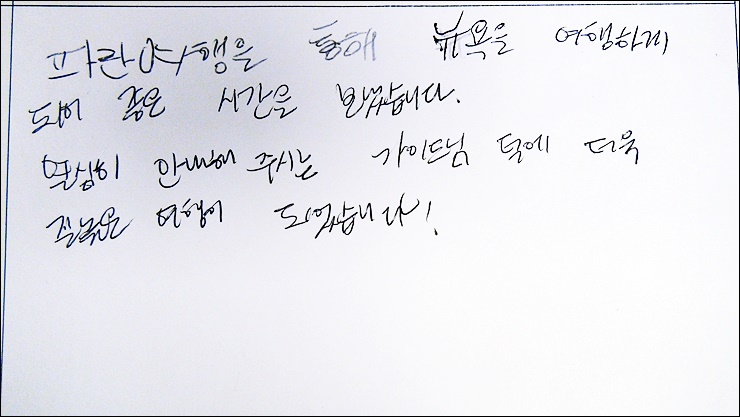 파란여행을 통해 뉴욕을 여행하게
되어 좋은 시간을 보냈습니다.
열심히 안내해 주시는 가이드님 덕에 더욱
즐거운 여행이 되었습니다!